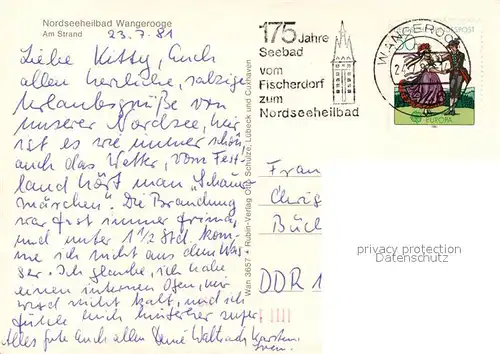 Nordseeheilbad Wangerooge
Am Strand
23.7.81
Liebe Kitty, Euch
allen herzliche, salzige
Urlaubsgrüße von
unserer Nordsee, hier
ist es wie immer schön
auch das Wetter, vom Fest-
land hört man "Schauer-
märchen". Die Brandung
war fast immer prima,
und unter 1 1/2 Std. kom-
me ich nicht aus dem Was-
ser. Ich glaube, ich habe
einen internen Ofen, mir
wird nicht kalt, und ich
fühle mich hinterher super.
Alles Gute auch allen Deine
Wan 3657 * Rubin-Verlag Otto Schulze, Lübeck und Cuxhaven
175 Jahre
Seebad
vom
Fischerdorf
zum
Nordseeheilbad
WANGEROOGE
EUROPA
Frau
Büch
DDR 1
privacy protection
Datenschutz